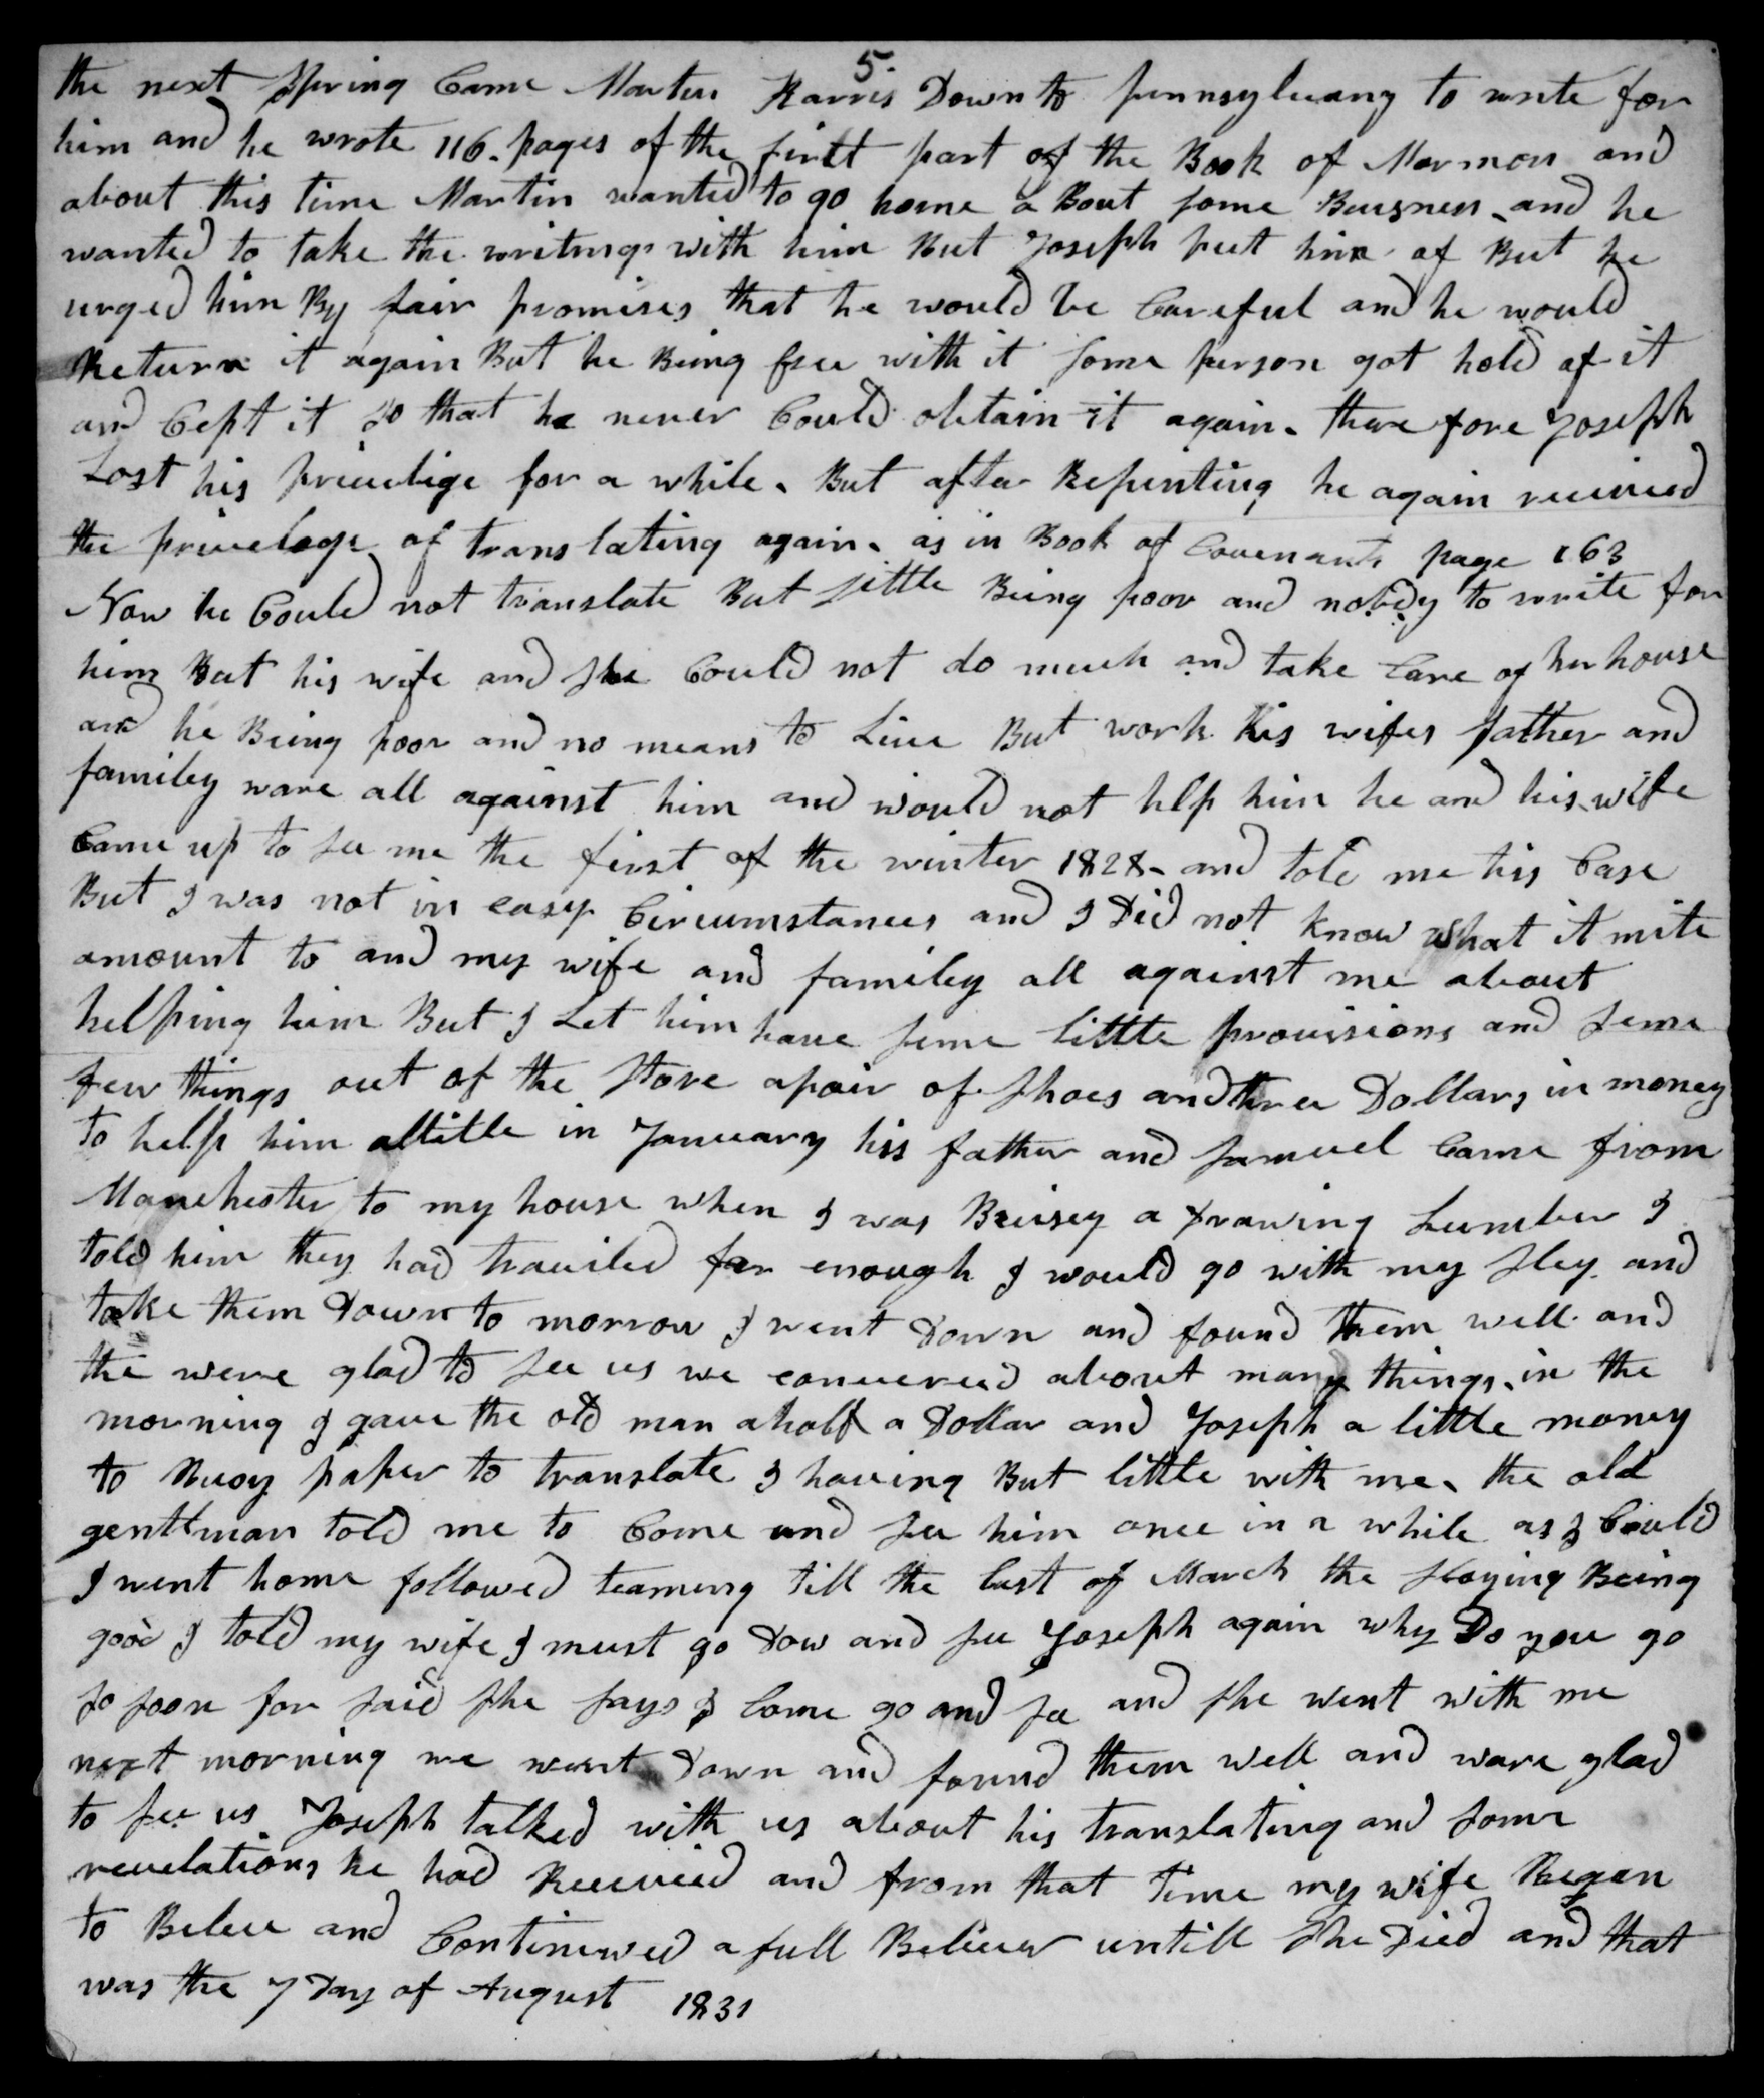 5.
the next Spring Came Martin Harris Down to pennsylvany to write for
him and he wrote 116. pages of the first part of the Book of Mormon and
about this time Martin wanted to go home a Bout some Buisness and he
wanted to take the writings with him But Joseph put him of But he
urged him By fair promises that he would be Careful and he would
Return it again But he Being free with it some person got hold of it
and Cept it so that he never Could obtain it again. there fore Joseph
Lost his privelige for a while. But after Repenting he again received
the privelege of translating again. as in Book of Covenants page 163
Now he Could not translate But little Being poor and nobdy to write for
him But his wife and she Could not do much and take Care of her house
and he Being poor and no means to Live But work his wifes father and
familey ware all against him and would not hlp him he and his wife
Came up to see me the first of the winter 1828 and told me his Case
But I was not in easy Circumstances and I Did not know what it mite
amount to and my wife and familey all against me about
helping him But I Let him have some little provisions and some
few things out of the store apair of shoes and three Dollars in money
to help him alittle in January his father and Samuel Came from
Manchester to my house when I was Buisey a Drawing Lumber I
told him they had traviled far enough I would go with my sley and
take them Down to morrow I went Down and found them well and
the were glad to see us we conversed about many things. in the
morning I gave the old man ahalf a Dollar and Joseph a little money
to Buoy paper to translate I having But little with me. the old
gentlman told me to Come and see him once in a while as I Could
I went home followed teaming till the last of March the slaying Being
good I told my wife I must go Dow and see Joseph again why Do you go
so soon for said she says I Come go and see and she went with me
next morning we went Down and found them well and ware glad
to see us Joseph talked with us about his translating and some
revelations he had Received and from that time my wife Began
to Beleve and Continuwed a full Believer untill she Died and that
was the 7 Day of August 1831